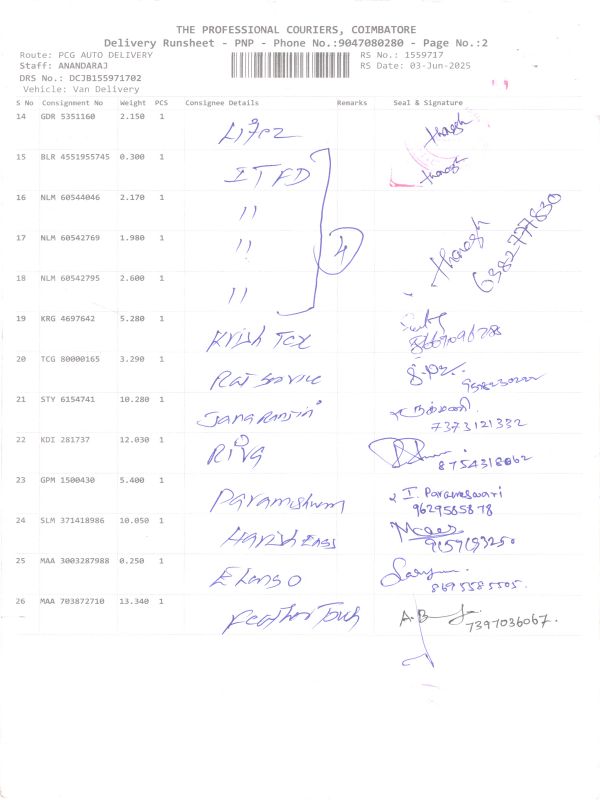 THE PROFESSIONAL COURIERS, COIMBATORE
Delivery Runsheet - PNP - Phone No.:9047080280 - Page No.:2
Route: PCG AUTO DELIVERY RS No.: 1559717
Staff: ANANDARAJ RS Date: 03-Jun-2025
DRS No.: DCJB155971702
Vehicle: Van Delivery
S No Consignment No Weight PCS Consignee Details Remarks Seal & Signature
14 GDR 5351160 2.150 1
15 BLR 4551955745 0.300 1 ITFD
16 NLM 60544046 2.170 1 "
17 NLM 60542769 1.980 1 " 4 6382777830
18 NLM 60542795 2.600 1 "
19 KRG 4697642 5.280 1 Krish Tex
20 TCG 80000165 3.290 1
21 STY 6154741 10.280 1 7373121332
22 KDI 281737 12.030 1 8754318662
23 GPM 1500430 5.400 1 I. Parameswari
9629585878
24 SLM 371418986 10.050 1 Harish
25 MAA 3003287988 0.250 1 8695585505.
26 MAA 703872710 13.340 1 Feather Touch A.B
7397036067.